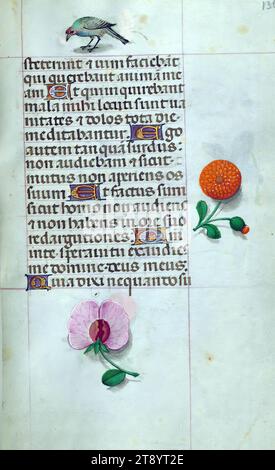 steterunt et uim faciebāt
qui querebant animā me
am Et qui inquirebant
mala michi locuti sunt ua
nitates et dolos tota die
meditabantur. Ego
autem tanquā surdus
non audiebam et sicut
mutus non aperiens os
suum Et factus sum
sicut homo non audiens
et non habens in ore suo
redargutiones
te speraui exaudies
me domine deus meus.
Quia dixi nequando su
alamy
Image ID: 2T8YT2E
www.alamy.com